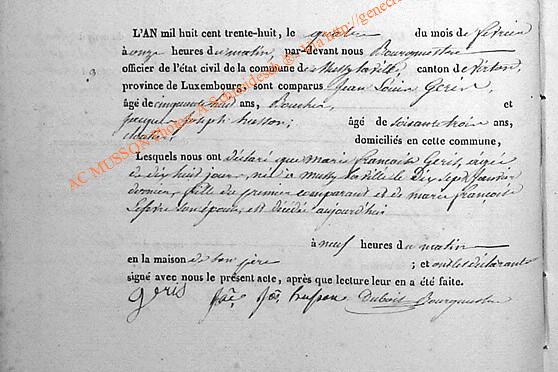 L'AN mil huit cent trente-huit, le quatre du mois de février
à onze heures du matin, par-devant nous Bourgmestre
officier de l'état civil de la commune de Mussy la ville, canton de Virton,
province de Luxembourg, sont comparus Jean Louis Geris,
âgé de cinquante huit ans, Boucher, et
jacques joseph husson; âgé de soixante trois ans,
domiciliés en cette commune,
Lesquels nous ont déclaré que marie francoise Geris, agée
de dix huit jours, née à mussy la ville le Dix sept janvier
dernier, fille du premier comparant et de marie françoise
Lefevre son epouse, est décédée aujourd'hui
à neuf heures du matin
en la maison de son père ; et ont les déclarants
signé avec nous le présent acte, après que lecture leur en a été faite.
geris husson Dubois Bourgmestre
AC MUSSON Photos A Schandeson ® via http://genecir